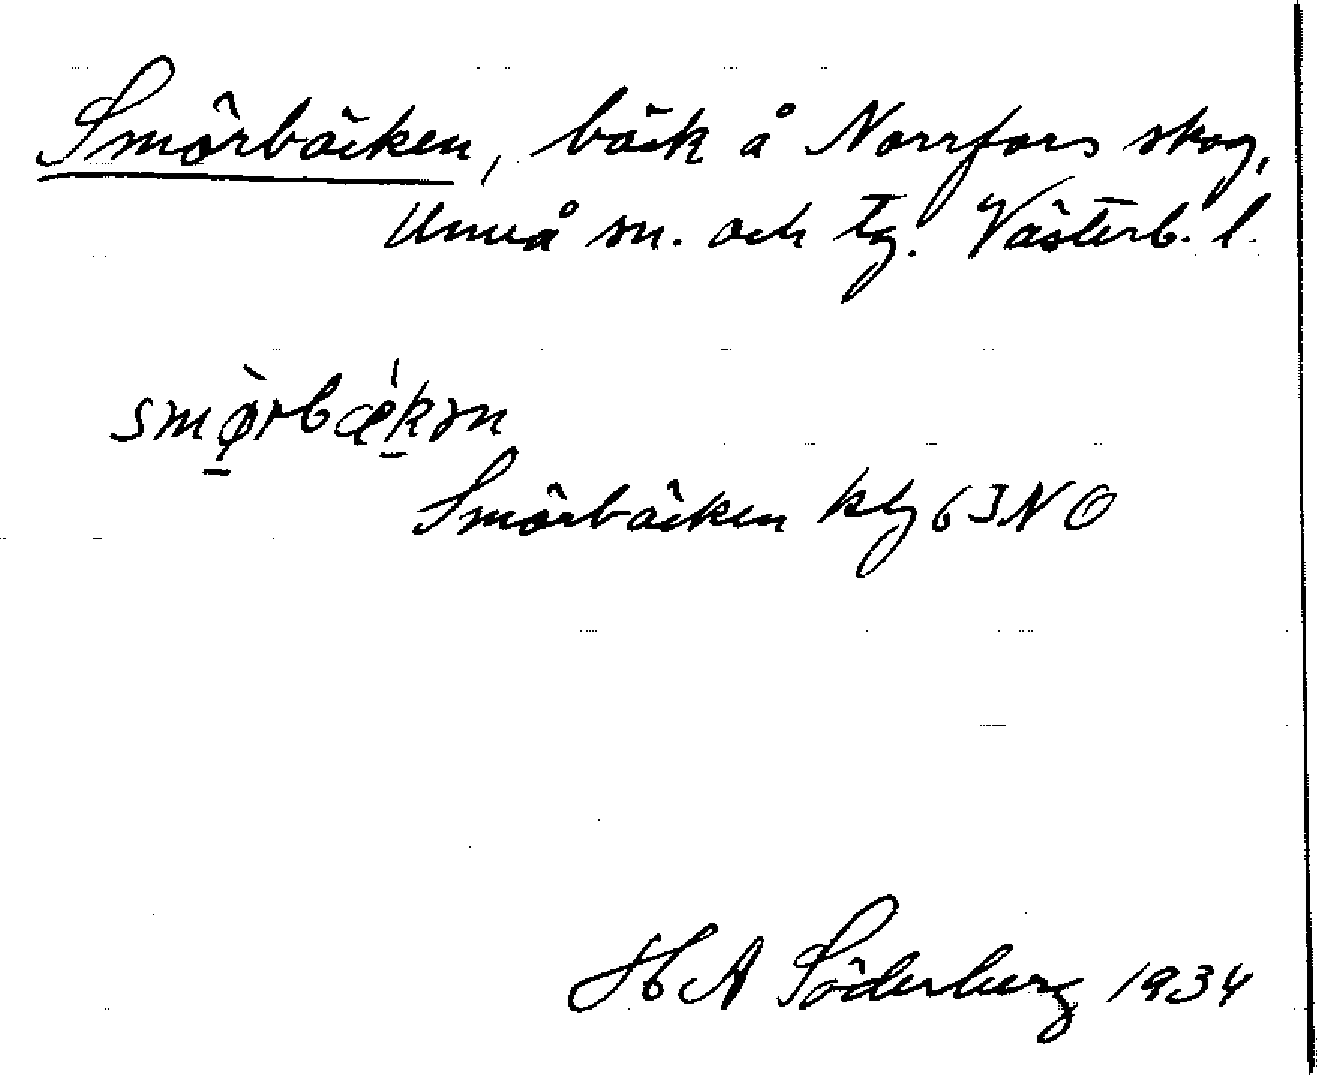 Smörbäcken, bäck å Norrfors skog,
Umeå sn. och tg. Västerb. l.
smø̀rbǽkən
Smörbäcken kbl 63 NO
H A Söderberg 1934